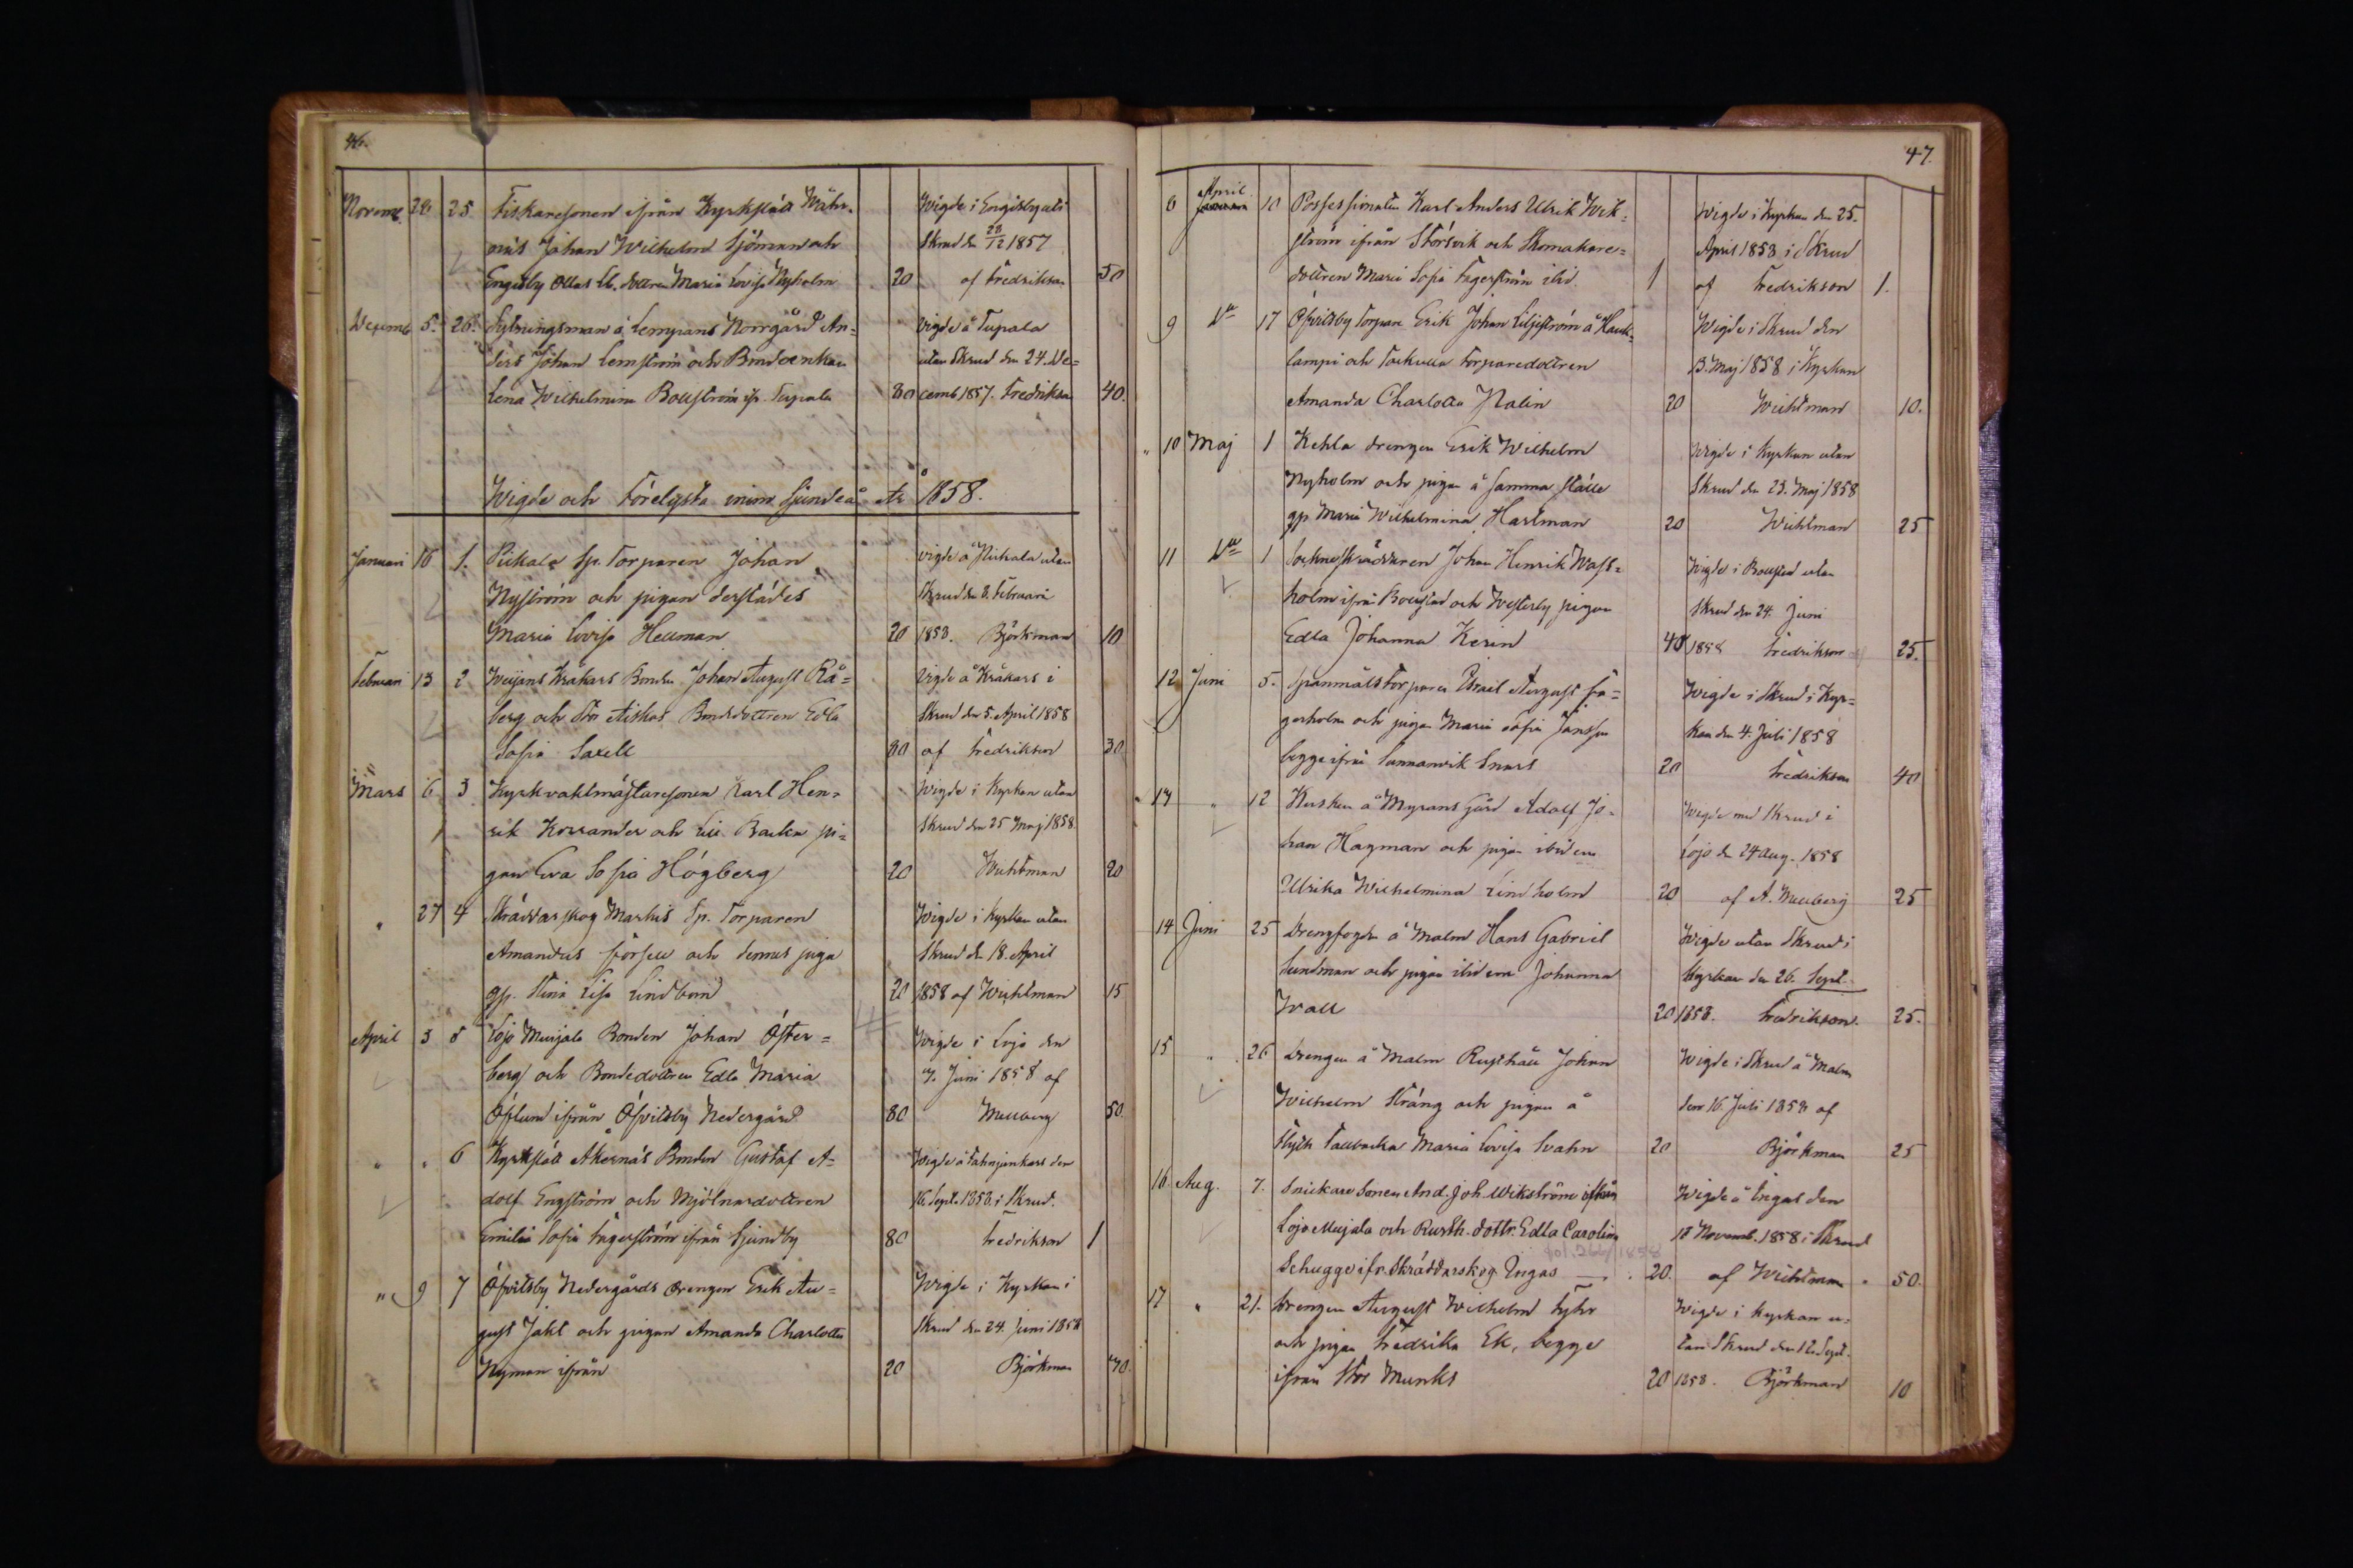 46.
Novemb. 28 25 Fiskaresonen ifrån Kyrkslätt
Johan Wilhelm Sjöman och
Engisby dottren Maria Lovisa Nyholm 20
Wigde i Engisby
Skrud den 28/12 1857
af Fredrikson 50
Decemb. 5. 26. Sytningsman å Lempans Norrgård An=
ders Johan Lemström och Bondeenkan
Lena Wilhelmina Bollström ifr. Tupala 80
Vigde å Tupala
utan Skrud den 24. De=
cemb 1857. Fredrikson 40.
Wigde och Förelysta inom Sjundeå År 1858.
Januari 16 1. Pickala Sp. Torparen Johan
Nyström och pigan derstädes
Maria Lovisa Hellman 20
vigde å Pickala utan
Skrud den 8. Februari
1858. Björkman 10
Februari 13 2 Weijans Kråkars Bonden Johan August Rå=
berg och Stor Aiskos Bondedottren Edla
Sofia Saxell 80
Vigde å Kråkars i
Skrud den 5. April 1858
af Fredrikson 30
Mars 6 3 Kyrkvaktmästaresonen Karl Hen=
rik Korsander och Lill Backa pi=
gan Eva Sofia Högberg 20
Wigde i Kyrkan utan
Skrud den 25 Maj 1858.
Wichtman 20
" 27 4 Skräddarskog Markis Sp. Torparen
Amandus Forsell och dennes piga
gp. Stina Lisa Lindbom 20
Wigde i Kyrkan utan
Skrud d. 18. April
1858 af Wichtman 15
April 3 5 Lojo Muijala Bonden Johan Öster=
berg och Bondedottren Edla Maria
Öflund ifrån Öfvitsby Nedergård 80
Wigde i Lojo den
7. Juni 1858 af
Mellberg 50
" " 6 Kyrkslätt Åkernäs Bonden Gustaf A=
dolf Engström och Mjölnardottren
Emilia Sofia Fagerström ifrån Sjundby 80
Wigde å den
16. Sept. 1858. i Skrud.
Fredrikson 1
" 9 7 Öfvitsby Nedergårds drengen Erik Au=
gust Jakt och pigan Amanda Charlotta
Nyman ifrån 20
Wigde i Kyrkan i
Skrud den 24. Juni 1858
Björkman 70.
47.
8 April 10 Possessionaten Karl Anders Ulrik Wik=
ström ifrån Störsvik och Skomakare=
dottren Maria Sofia Fagerström ibid. 1
Wigde i Kyrkan den 25.
April 1858 i Skrud
af Fredrikson 1.
9 Do 17 Öfvitsby Torpare Erik Johan Liljeström å Hauk=
lampi och Torparedottren
Amanda Charlotta Malin 20
Wigde i Skrud den
13. Maj 1858 i Kyrkan
Wichtman 10.
" 10 Maj 1 Kehla drengen Erik Wilhelm
Nyholm och pigan å samma ställe
gp. Maria Wilhelmina Hartman 20
Wigde i Kyrkan utan
Skrud den 23. Maj 1858
Wichtman 25
11 Do 1 Sockneskräddaren Johan Henrik Wass=
holm ifrån Bollstad och Westerby pigan
Edla Johanna Kerin 40
Wigde i Bollstad utan
Skrud den 24. Juni
1858 Fredrikson 25.
12 Juni 5. Spannmåls torparen Israil August Fa=
gerholm och pigan Maria Sofia Jansson
begge ifrån Sunnanvik Snars 20
Wigde i Skrud i Kyr=
kan den 4. Juli 1858
Fredrikson 40
13 " 12 Kusken å Myrans Gård Adolf Jo=
han Hagman och pigan ibidem
Ulrika Wilhelmina Lindholm 20
Wigde med Skrud i
Lojo d. 24 Aug. 1858
af A. Mellberg 25
14 Juni 25 Drengfogden å Malm Hans Gabriel
Sundman och pigan ibidem Johanna
Wall 20
Wigde utan Skrud i
Kyrkan den 26. Sept.
1858. Fredrikson. 25.
15 " 26 Drengen å Malm Rusthåll Johan
Wilhelm Sträng och pigan å
Flyth Tallbacka Maria Lovisa Svahn 20
Wigde i Skrud å Malm
den 16. Juli 1858 af
Björkman 25
16 Aug. 7. Snickare Sonen And. Joh. Wikström ifrån
Lojo Mujala och Rusth. dottr. Edla Carolina
fol. 266/1858
Schugge ifr. Skräddarskog Ingas 20.
Wigde å Ingas den
18 Novemb. 1858 i Skrud
af Wichtman 50.
17 " 21. Drengen August Wilhelm Fyhr
och pigan Fredrika Ek, begge
ifrån Stor Munks 20
Wigde i Kyrkan u=
tan Skrud den 12. Sept.
1858. Björkman 10